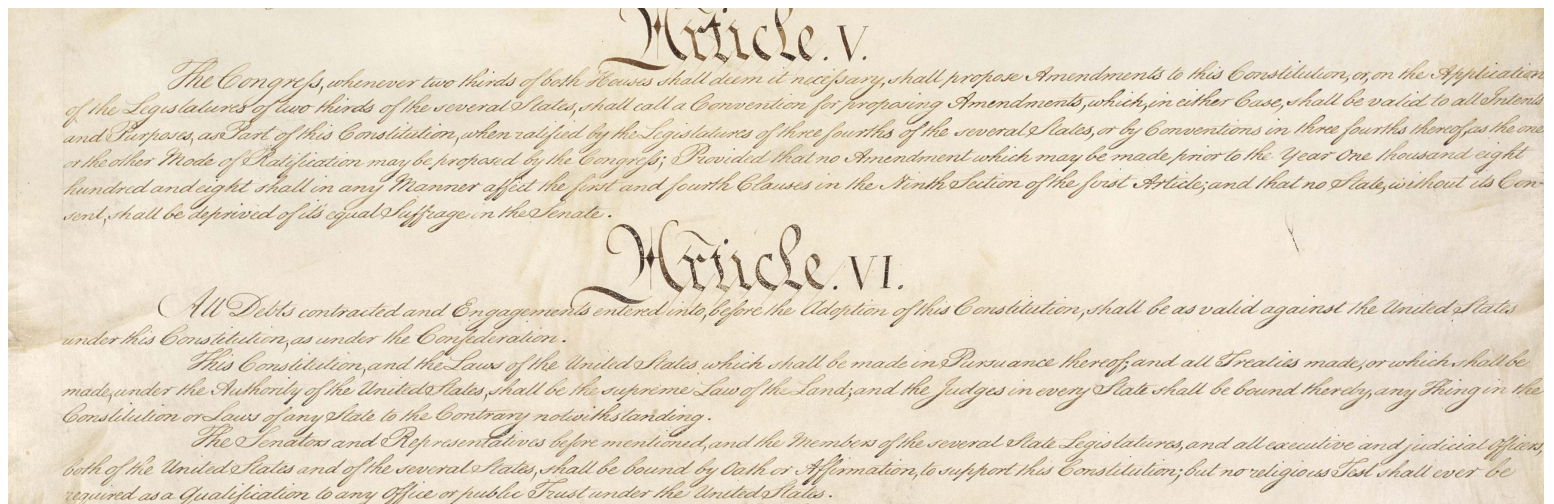 Article. V.
The Congress, whenever two thirds of both Houses shall deem it necessary, shall propose Amendments to this Constitution, or, on the Application
of the Legislatures of two thirds of the several States, shall call a Convention for proposing Amendments, which, in either Case, shall be valid to all Intents
and Purposes, as Part of this Constitution, when ratified by the Legislatures of three fourths of the several States, or by Conventions in three fourths thereof, as the one
or the other Mode of Ratification may be proposed by the Congress; Provided that no Amendment which may be made prior to the Year One thousand eight
hundred and eight shall in any Manner affect the first and fourth Clauses in the Ninth Section of the first Article; and that no State, without its Con-
sent, shall be deprived of it's equal Suffrage in the Senate.
Article. VI.
All Debts contracted and Engagements entered into, before the Adoption of this Constitution, shall be as valid against the United States
under this Constitution, as under the Confederation.
This Constitution, and the Laws of the United States which shall be made in Pursuance thereof; and all Treaties made, or which shall be
made, under the Authority of the United States, shall be the supreme Law of the Land; and the Judges in every State shall be bound thereby, any Thing in the
Constitution or Laws of any State to the Contrary notwithstanding.
The Senators and Representatives before mentioned, and the Members of the several State Legislatures, and all executive and judicial Officers,
both of the United States and of the several States, shall be bound by Oath or Affirmation, to support this Constitution; but no religious Test shall ever be
required as a Qualification to any Office or public Trust under the United States.